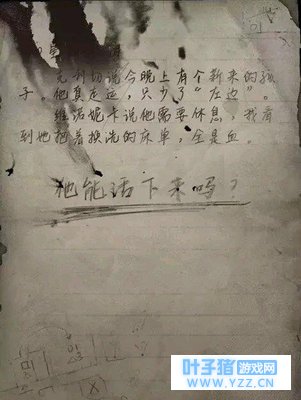 尤利切说今晚上有个新来的孩
子。他真走运，只少了“左边”。
维诺妮卡说他需要休息，我看
到她抱着换洗的床单，全是血。
他能活下来吗？
叶子猪游戏网
www.YZZ.CN